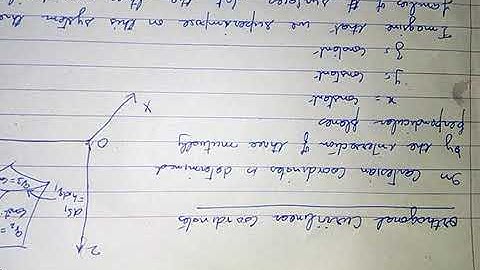 Orthogonal Curvilinear Coordinates
In Cartesian Coordinates is determined
by the intersection of three mutually
perpendicular planes
x = constant
y = constant
z = constant
Imagine that we superimpose on this system three
families of
surfaces
Z
O
X
ds₁
= h₁dq₁
q₂ =
Const
q₃ = c